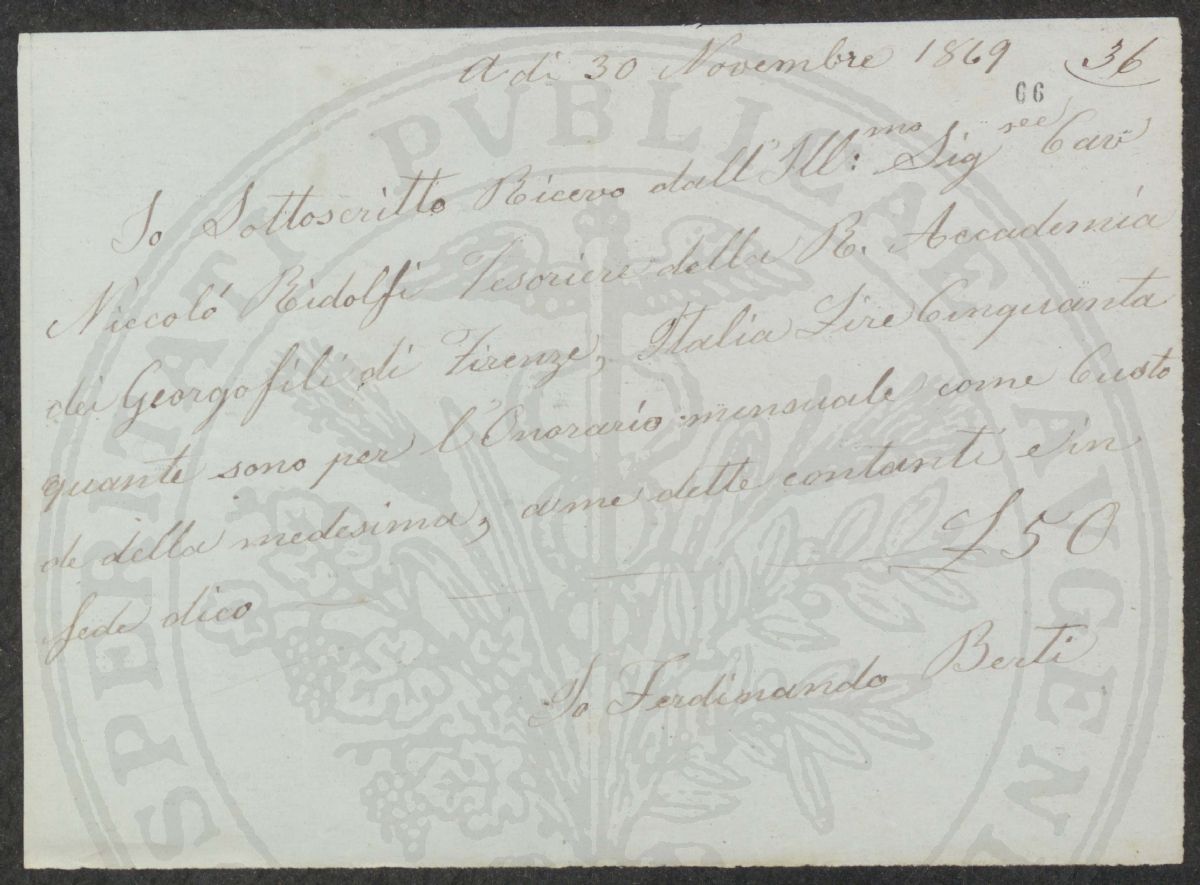 A di 30 Novembre 1869 36
66
Io Sottoscritto Ricevo dall' Ill:mo Sigree Cav
Niccoló Ridolfi Tesoriere della R. Accademia
dei Georgofili di Firenze, Italia Lire Cinquanta
quante sono per l'Onorario mensuale come Custo
de della medesima, a me dette contanti e in
fede dico £ 50
Io Ferdinando Berti
PROSPERITATI PVBLICAE AVGENDAE